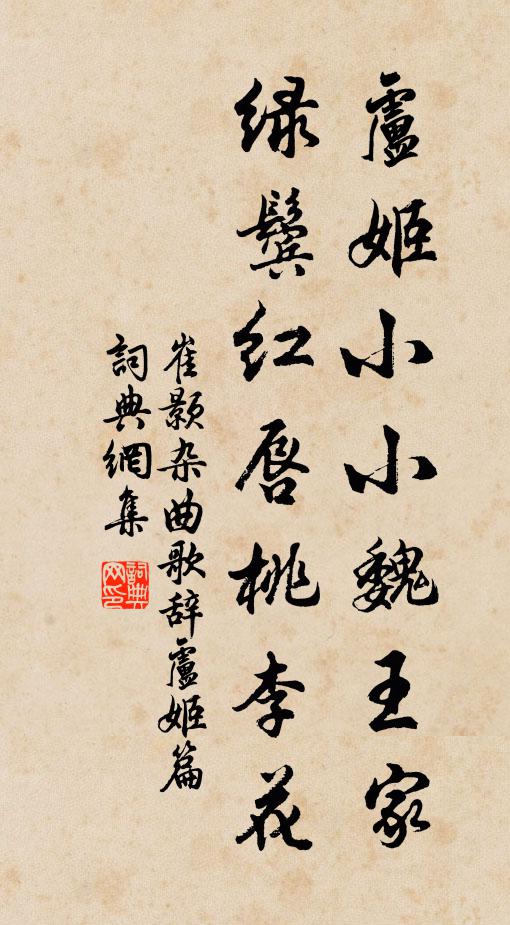 盧姬小小魏王家
绿鬓红唇桃李花
崔颢杂曲歌辞盧姬篇
詞典網集
詞典网印